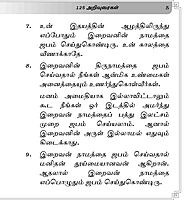 125 அறிவுரைகள் 5
7. உன் இதயத்தின் ஆழத்திலிருந்து
எப்போதும் இறைவனின் நாமத்தை
ஜபம் செய்துகொண்டிரு. உன் காலத்தை
வீணாக்காதே.
8. இறைவனின் திருநாமத்தை ஜபம்
செய்வதால் நீங்கள் ஆன்மிக உண்மைகள்
அனைத்தையும் உணர்ந்துகொள்வீர்கள்.
மனம் அமைதியாக இல்லாவிட்டாலும்
கூட நீங்கள் ஓர் இடத்தில் அமர்ந்து
இறைவன் நாமத்தைப் பத்து இலட்சம்
முறை ஜபம் செய்யலாம். ஆனால்
இறைவனின் அருள் இல்லாமல் எதுவும்
கிடைக்காது.
9. இறைவன் நாமத்தை ஜபம் செய்வதால்
மனிதன் தூய்மையானவன் ஆகிறான்.
ஆதலால் இறைவன் நாமத்தை
எப்பொழுதும் ஜபம் செய்துகொண்டிரு.